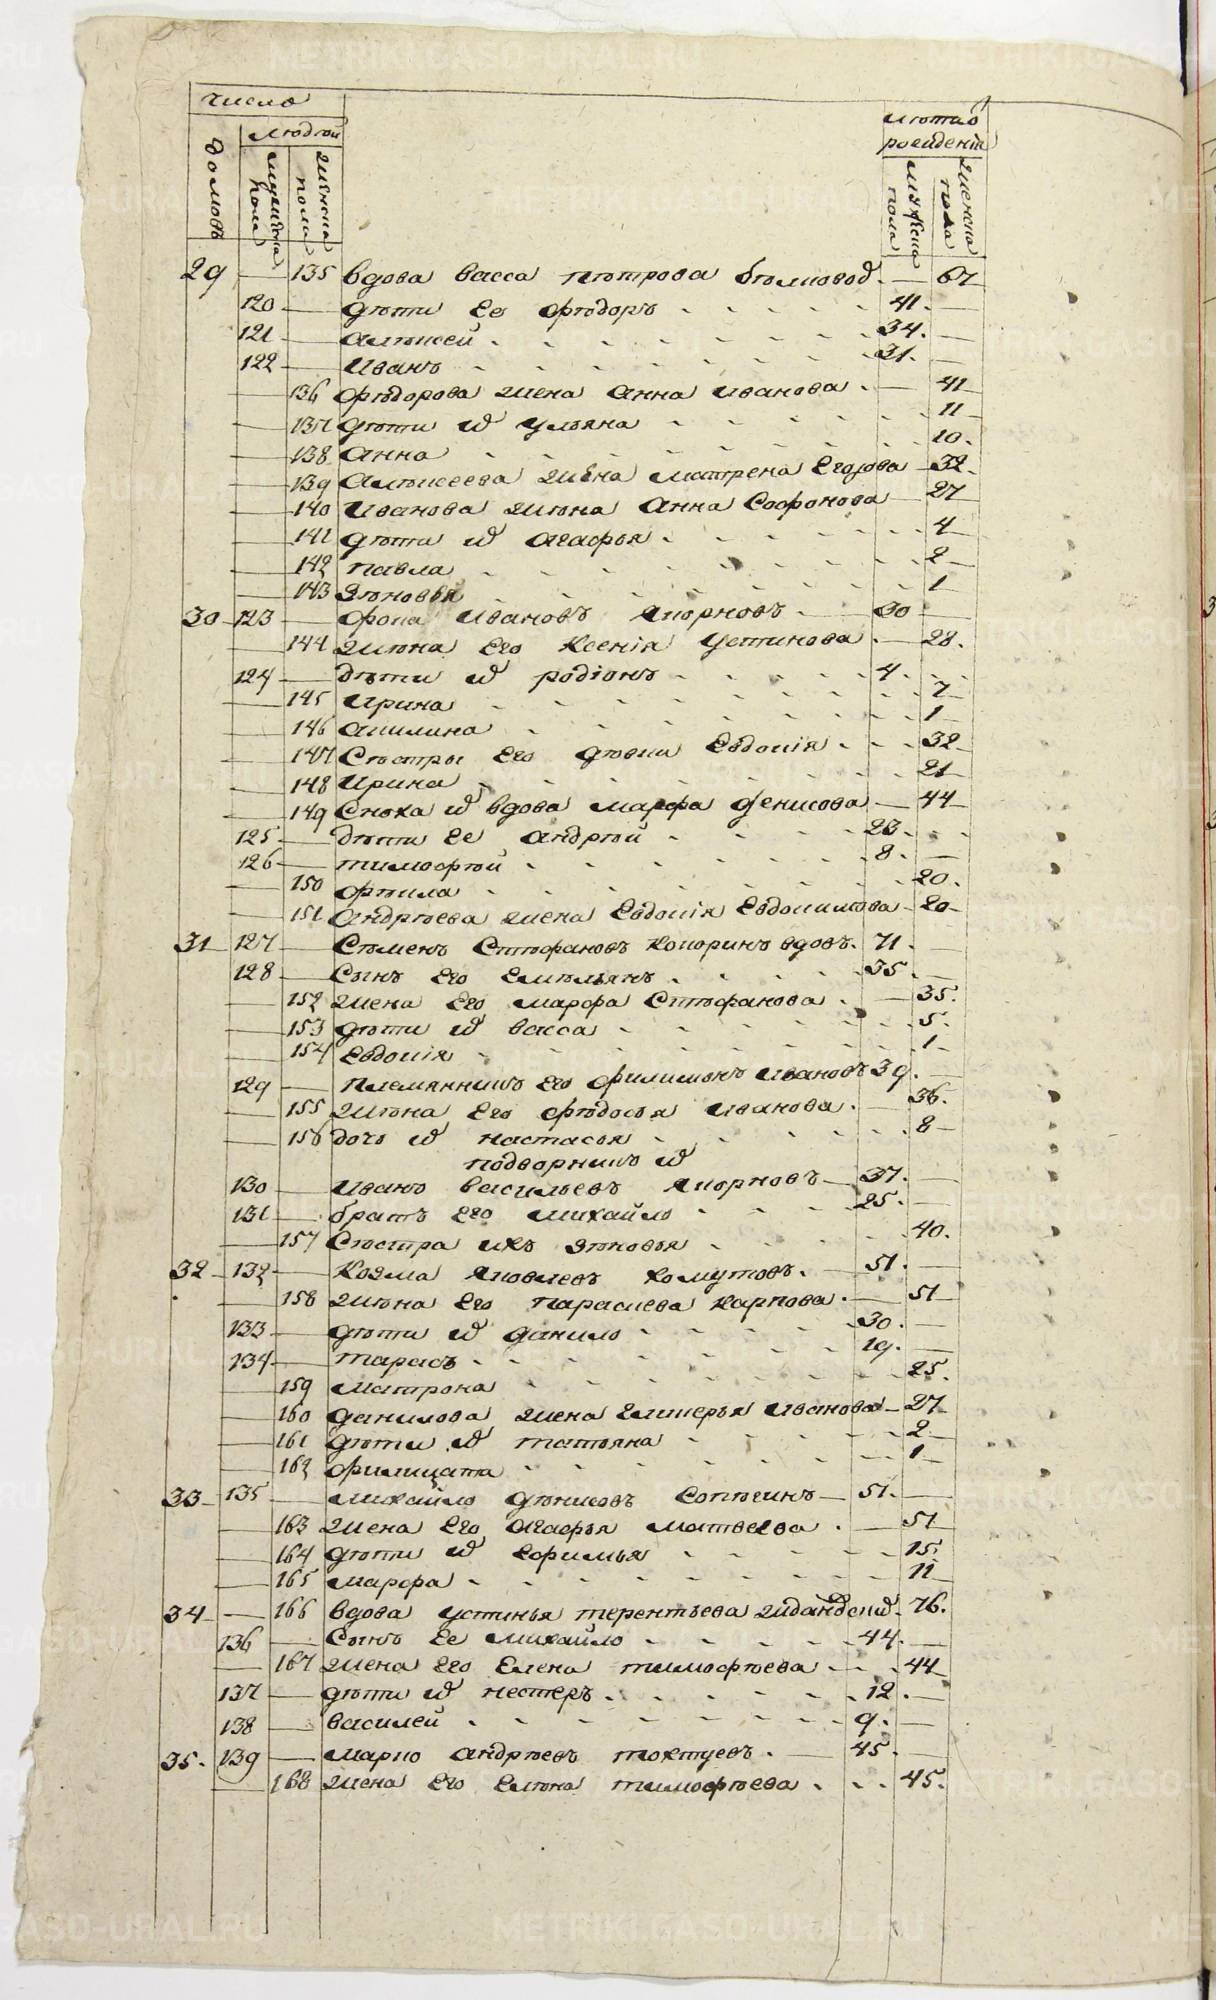 METRIKI.GASO-URAL.RU
число
людей
лѣтъ
рождения
домовъ
мужеска пола
женска пола
мужеска пола
женска пола
29 — 135 вдова васса пѣтрова — 67
120 — дѣти ее фѣдоръ 41
121 — алѣксей 34
122 — иванъ 31
— 136 фѣдорова жена анна иванова — 41
— 137 дѣти их ульяна 11
— 138 анна 10
— 139 алѣксеева жена матрена егорова 32
— 140 иванова жена анна софронова 27
— 141 дѣти их агафья 4
— 142 павла 2
— 143 зѣновья 1
30 123 — фока ивановъ 30
— 144 жѣна его ксенія устинова — 28
124 — дѣти их родіонъ 4
— 145 ирина 7
— 146 акилина 1
— 147 сѣстры его дѣвки евдокія 32
— 148 ирина 21
— 149 сноха их вдова марфа денисова — 44
125 — дѣти ее андрѣй 23
126 — тимофѣй 8
— 150 фѣкла 20
— 151 андрѣева жена евдокія евдокимова 20
31 127 — сѣменъ стѣфановъ кокоринъ вдовъ 71
128 — сынъ его емѣльянъ 35
— 152 жена его марфа стѣфанова — 35
— 153 дѣти их васса 5
— 154 евдокія 1
129 — племянникъ его филимонъ ивановъ 39
— 155 жѣна его фѣдосья иванова — 36
— 156 дочь их настасья 8
подворникъ их
130 — иванъ васильевъ 37
131 — братъ его михайло 25
— 157 сѣстра ихъ зѣновья 40
32 132 — козма яковлевъ хомутовъ 51
— 158 жѣна его параскева карпова — 51
133 — дѣти их данило 30
134 — тарасъ 19
— 159 матрона 25
— 160 данилова жена гликерья иванова 27
— 161 дѣти их татьяна 2
— 162 филицата 1
33 135 — михайло дѣнисовъ 51
— 163 жена его агафья матвеева — 51
— 164 дѣти их ефимья 15
— 165 марфа 11
34 — 166 вдова устинья терентьева 76
136 — сынъ ее михайло 44
— 167 жена его елена тимофѣева 44
137 — дѣти их нестеръ 12
138 — василей 9
35 139 — марко андрѣевъ токтуевъ — 45
— 168 жена его елѣна тимофѣева 45